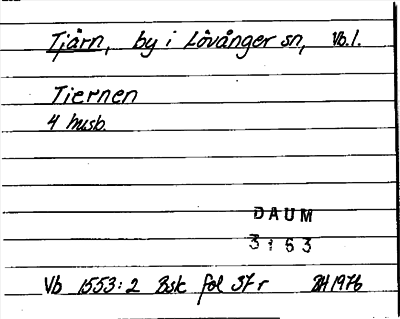 Tjärn, by i Lövånger sn, Vb.l.
Tiernen
4 husb.
DAUM
3163
Vb 1553:2 Bsk fol 37 r BH 1976